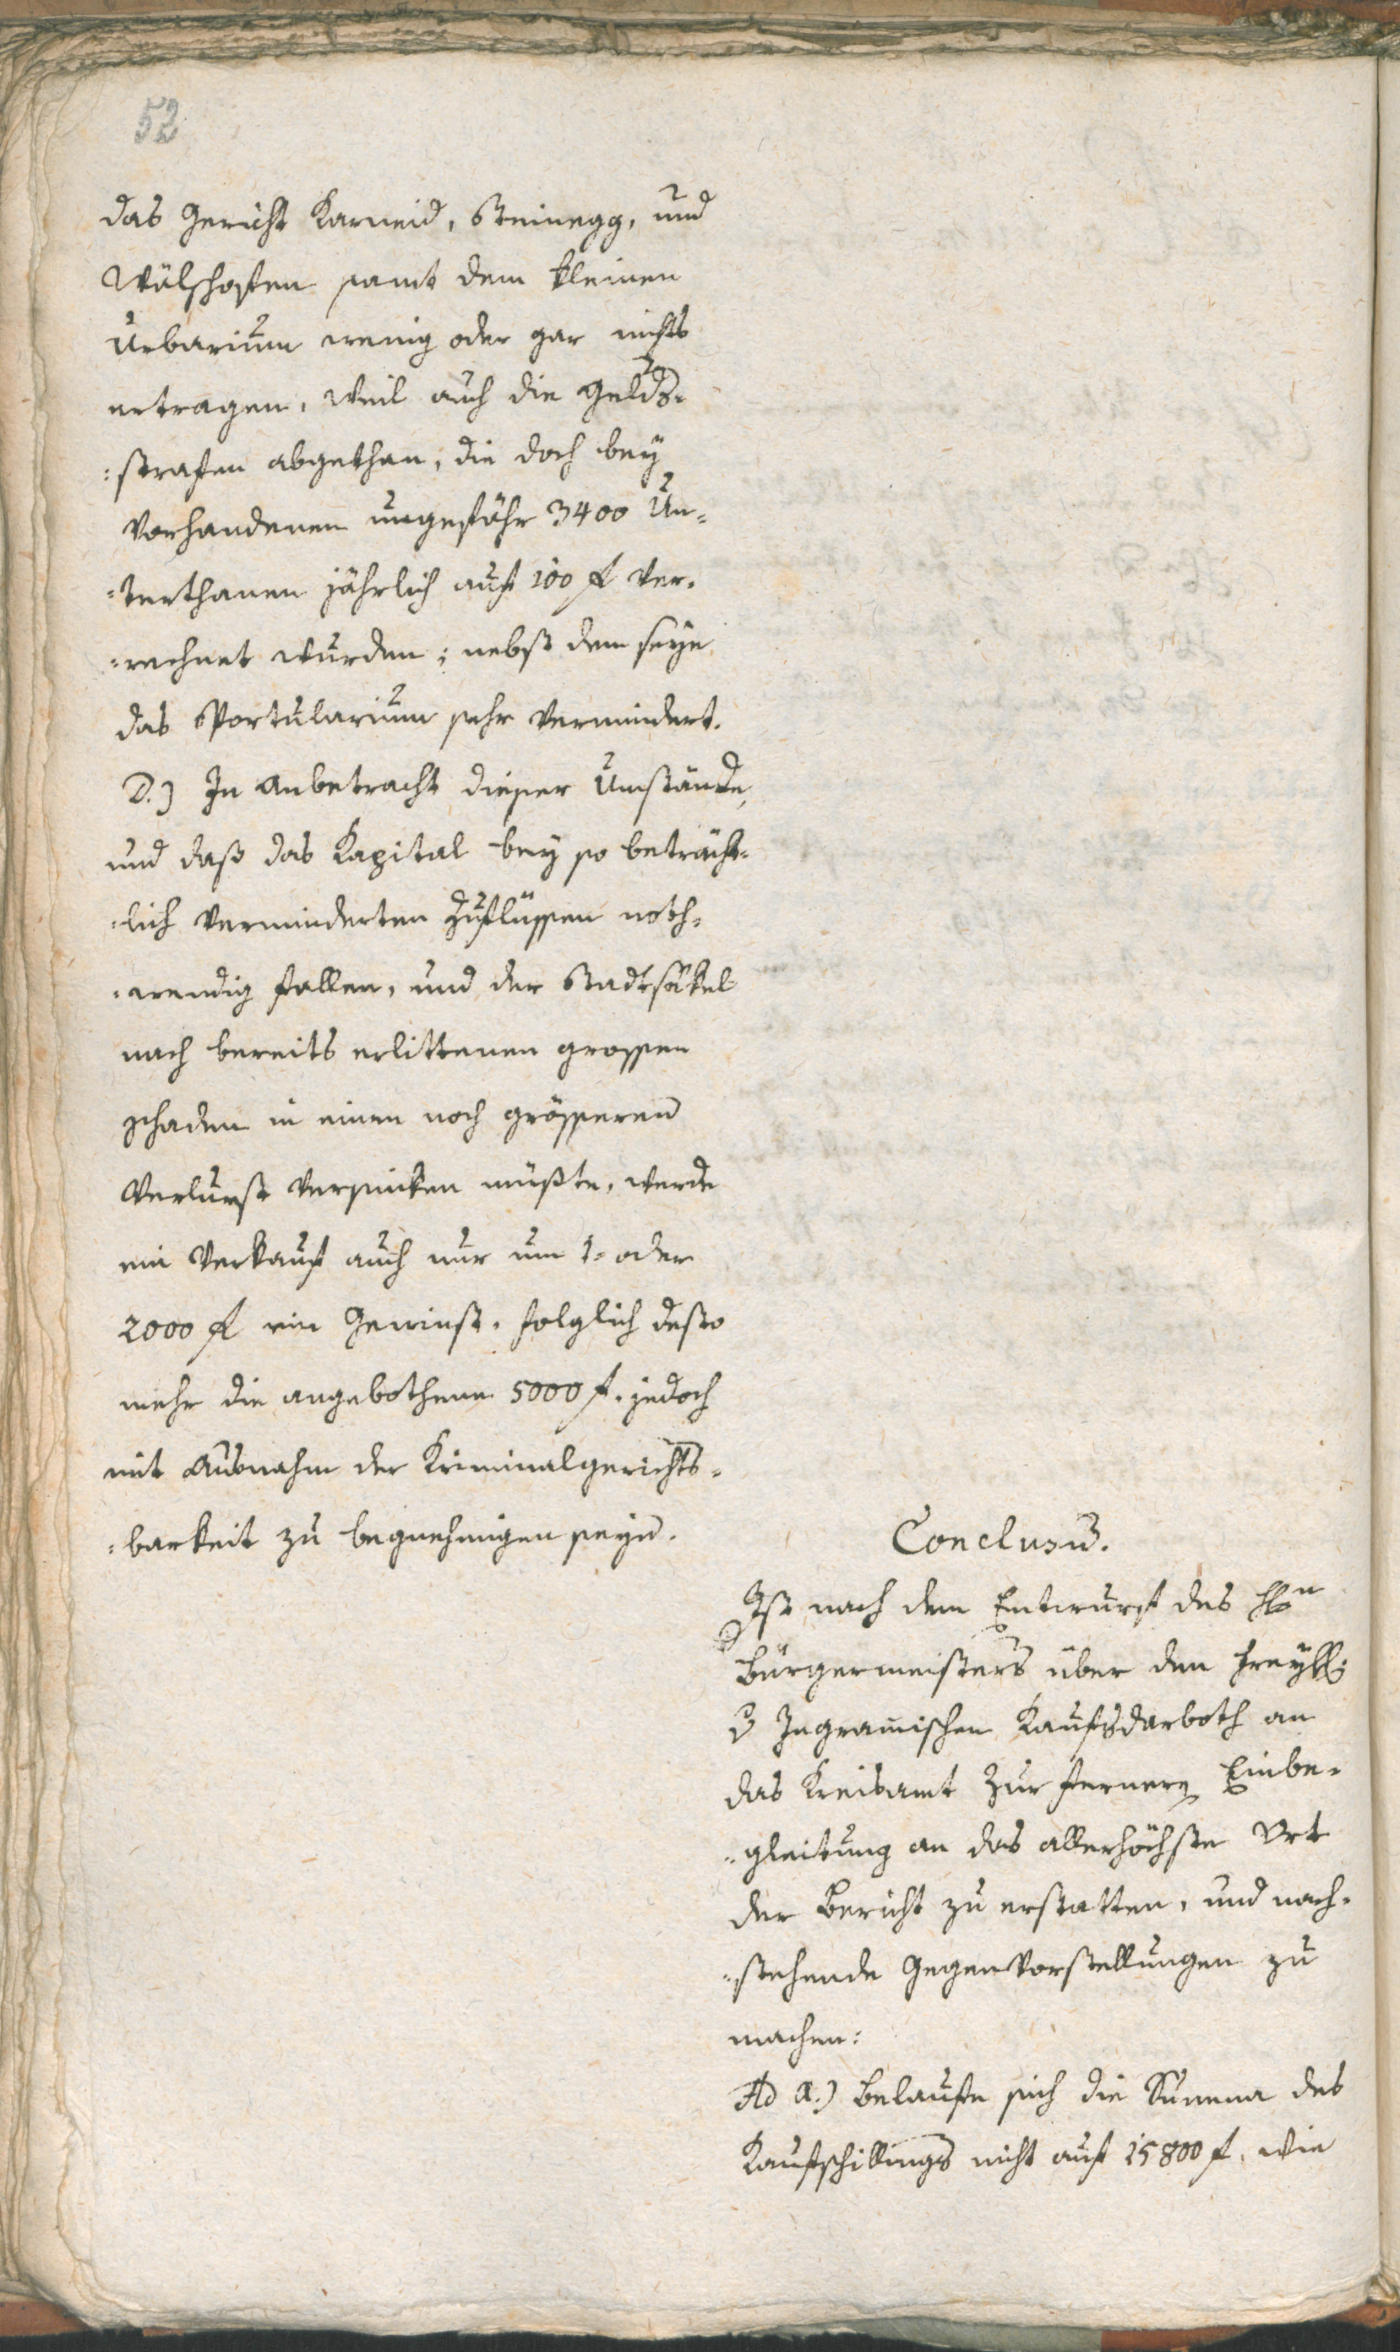 52
das Gericht Karneid, Steinegg, und
Wälschofen samt dem kleinen
Urbarium wenig oder gar nichts
ertragen, weil auch die Gelds-
:strafen abgethan, die doch bey
vorhandenen ungefähr 3400 Un-
-terthanen jährlich auf 100 f ver-
-rechnet wurden; nebst dem seye
das Sportularium sehr vermindert.
D.) In Anbetracht dieser Umstände,
und daß das Kapital bey so beträcht-
-lich verminderten Zuflüssen noth-
-wendig fallen, und der Stadtsäkel
nach bereits erlittenen grossen
Schaden in einen noch grösseren
Verlurst versinken müßte, werde
ein Verkauf auch nur um 1- oder
2000 f ein Gewinst, folglich desto
mehr die angebothene 5000 f. jedoch
mit Ausnahm der Kriminalgerichts-
-barkeit zu begnehmigen seyn.
Conclusum.
Ist nach dem Entwurf des Hrn
Bürgermeisters über den Freyhl:
v Ingramischen Kaufsdarboth an
das Kreisamt zur fernern Einbe-
-gleitung an das allerhöchste Ort
der Bericht zu erstatten, und nach-
-stehende Gegenvorstellungen zu
machen:
Ad A.) Belaufe sich die Summa des
Kaufschillings nicht auf 15800 f. wie